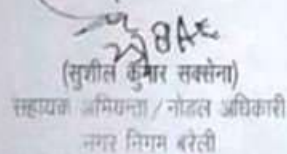 (सुशील कुमार सक्सेना)
सहायक अभियन्ता / नोडल अधिकारी
नगर निगम बरेली